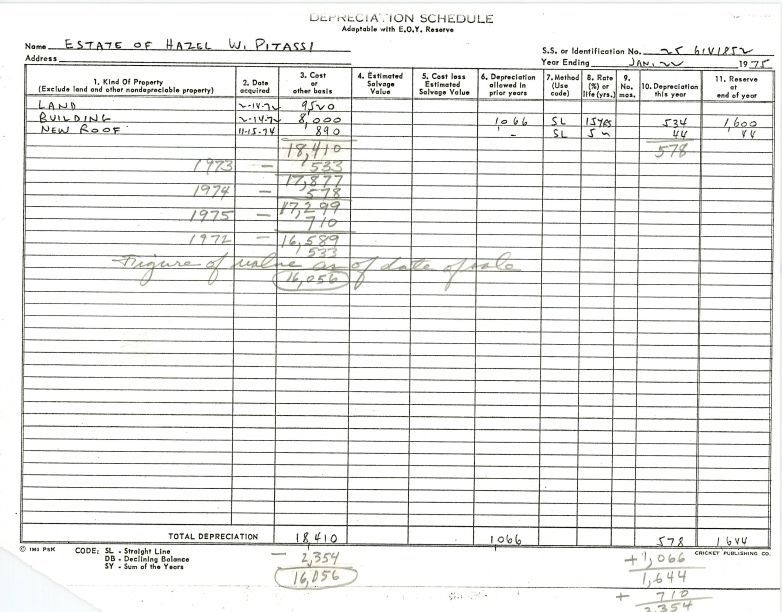 DEPRECIATION SCHEDULE
Adaptable with E.O.Y. Reserve
Name ESTATE OF HAZEL W. PITASSI
S.S. or Identification No. 25 61V1852
Address
Year Ending JAN. 22 1975
1. Kind Of Property (Exclude land and other nondepreciable property) 2. Date acquired 3. Cost or other basis 4. Estimated Salvage Value 5. Cost less Estimated Salvage Value 6. Depreciation allowed in prior years 7. Method (Use code) 8. Rate (%) or life (yrs.) 9. No. mos. 10. Depreciation this year 11. Reserve at end of year
LAND 2-14-72 9520
BUILDING 2-14-72 8,000 1066 SL 15 YRS 534 1,600
NEW ROOF 11-15-74 890 - SL 5 " 44 44
18,410 578
1973 - 533
17,877
1974 - 578
17,299
1975 - 710
1972 - 16,589
533
Figure of value as of date of sale
16,056
TOTAL DEPRECIATION 18,410 1066 578 1644
© 1963 PSK CODE: SL - Straight Line
DB - Declining Balance
SY - Sum of the Years
CRICKET PUBLISHING CO.
- 2,354
16,056
+ 1,066
1,644
+ 710
2,354